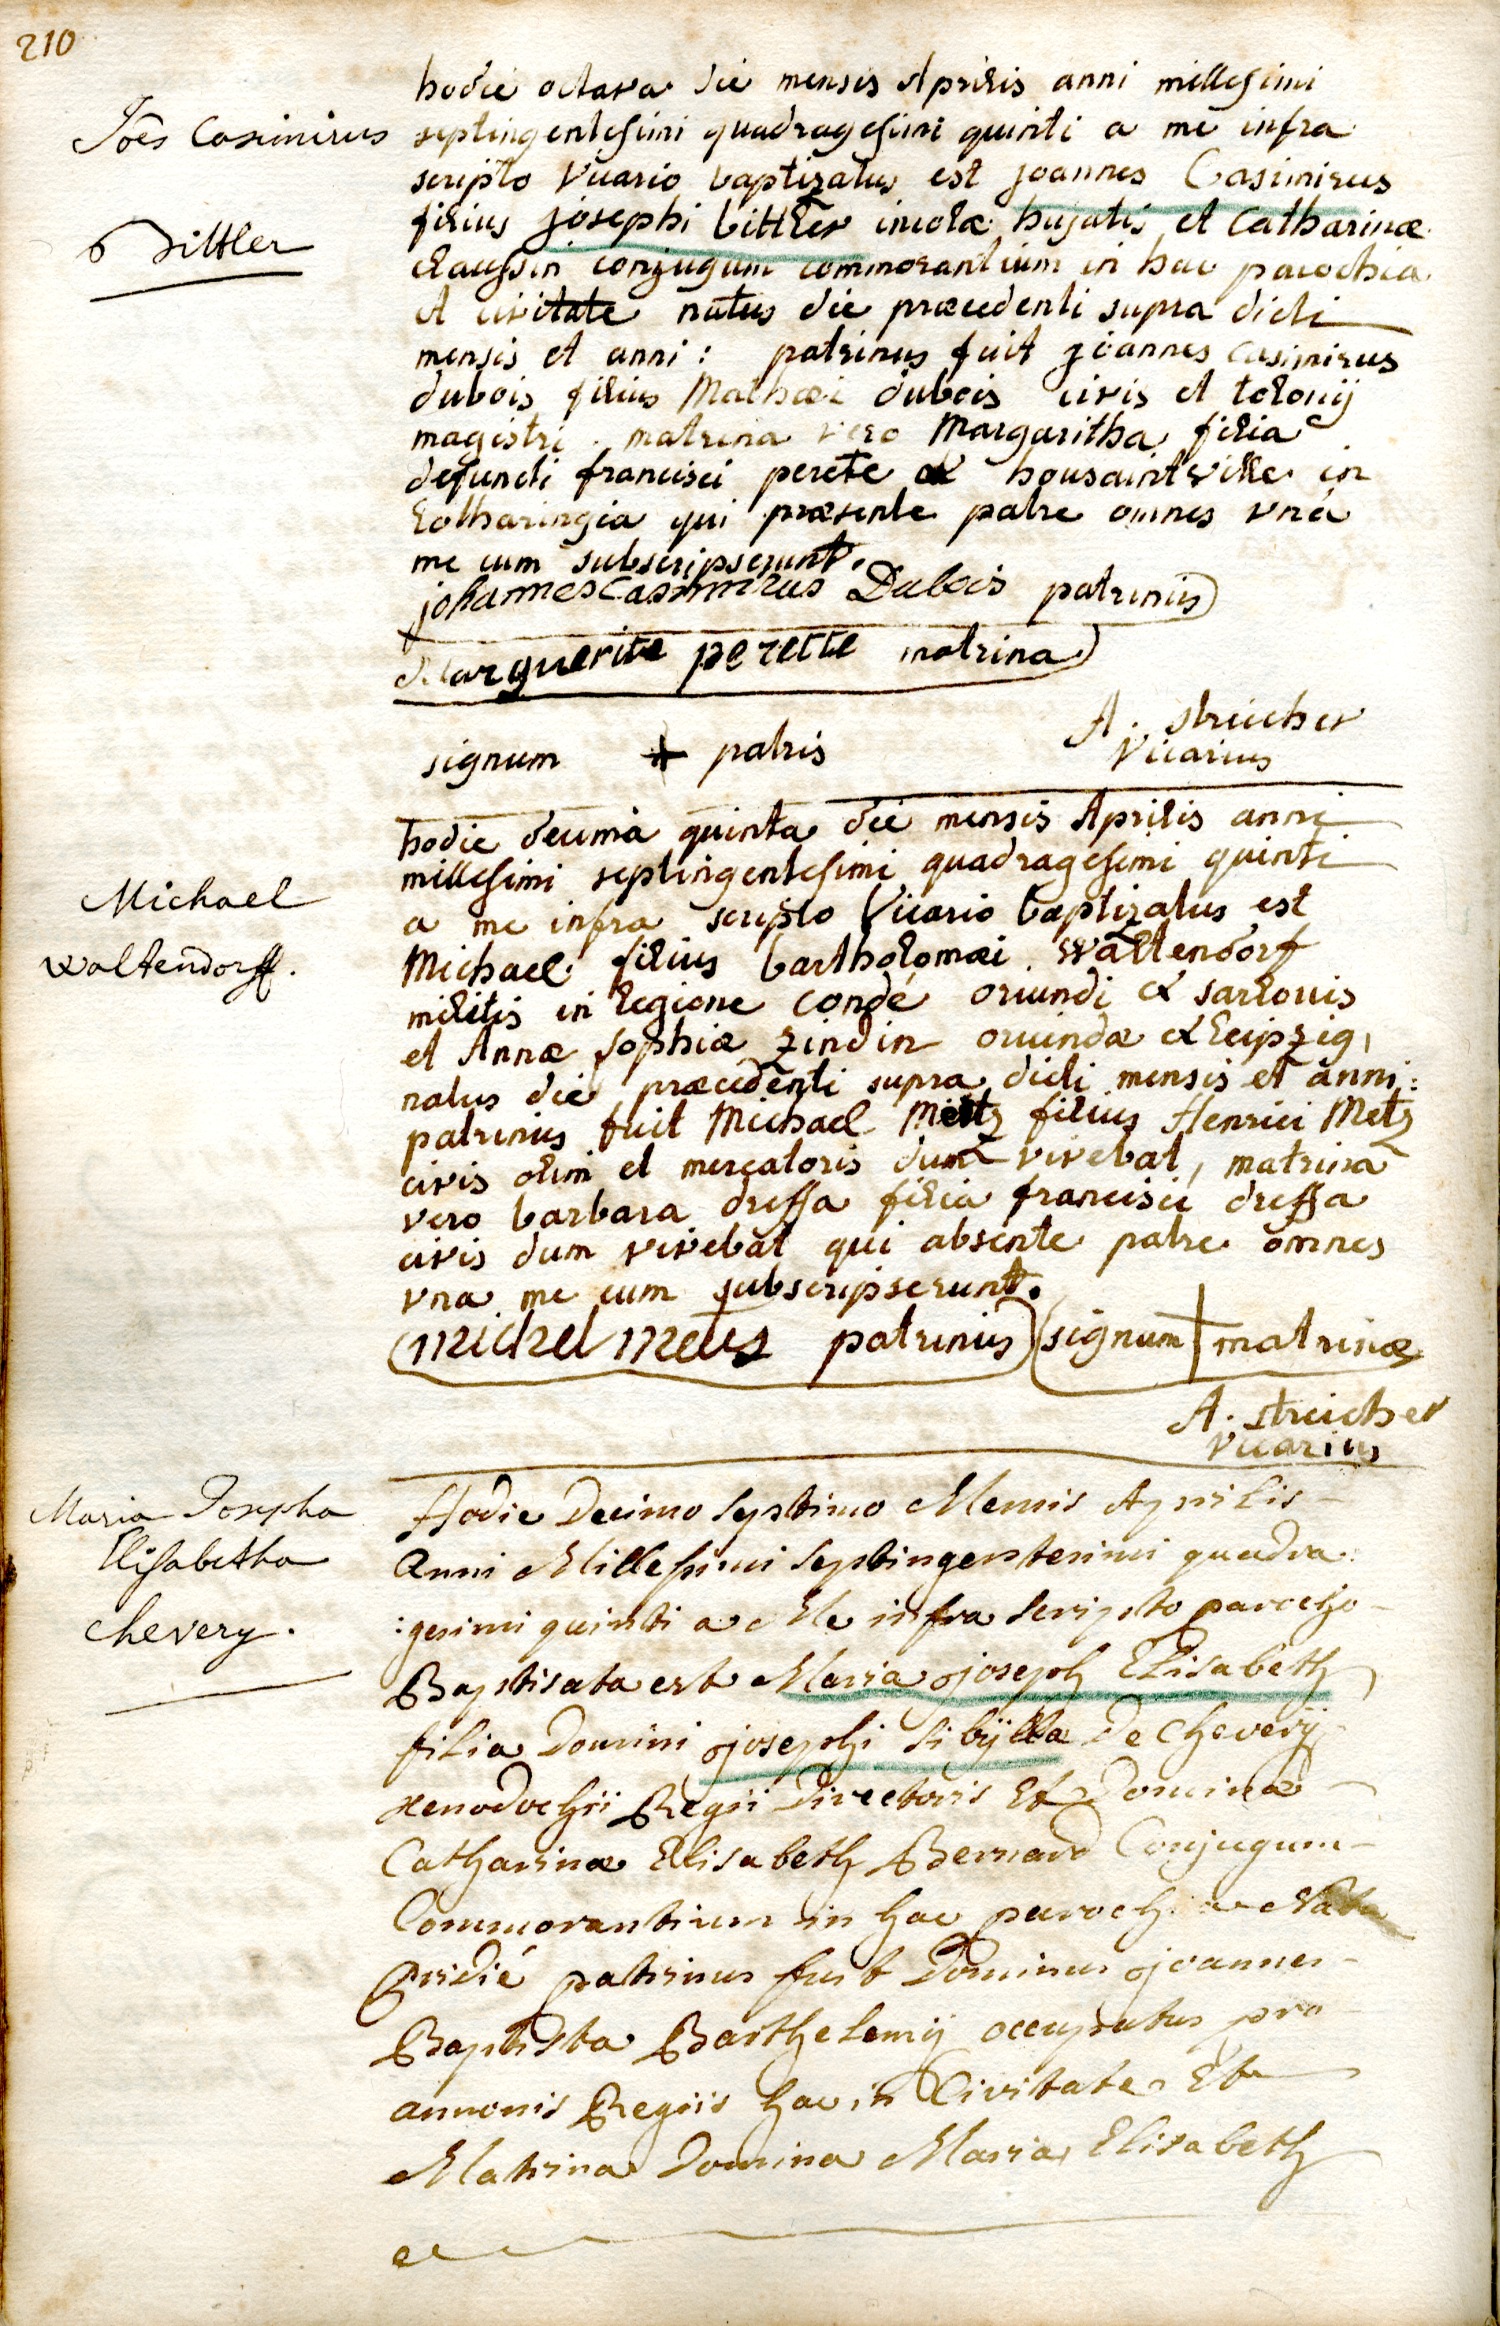 210
Joēs Casimirus
Bittler
hodie octava die mensis Aprilis anni millesimi
septingentesimi quadragesimi quinti a me infra
scripto Vicario baptizatus est joannes Casimirus
filius josephi bittler incolæ hujatis et Catharinæ
claussin conjugum commorantium in hac parochia
et civitate natus die præcedenti supra dicti
mensis et anni : patrinus fuit joannes casimirus
dubois filius Mathæi dubois civis et telonij
magistri . matrina vero Margaritha filia
defuncti francisci perete ex housaintville in
Lotharingia qui præsente patre omnes vná
me cum subscripserunt.
johannes Casimirus Dubois patrinus
Marguerite perette matrina
signum + patris
A. streicher
Vicarius
Michael
waltendorff.
hodie decima quinta die mensis Aprilis anni
millesimi septingentesimi quadragesimi quinti
a me infra scripto Vicario baptizatus est
Michael filius bartholomæi waltendorf
militis in legione condé oriundi ex sarlouis
et Annæ sophiæ zindin oriundæ ex Leipzig,
natus die præcedenti supra dicti mensis et anni :
patrinus fuit Michael Metz filius Henrici Metz
civis olim et mercatoris dum vivebat, matrina
vero barbara dressa filia francisci dressa
civis dum vivebat qui absente patre omnes
vna me cum subscripserunt.
michel patrinus signum + matrinæ
A. streicher
Vicarius
Maria Josepha
Elisabetha
chevery.
Hodie Decimo Septimo Mensis Aprilis
Anni Millesimi Septingentesimi quadra:
:gesimi quinti a Me infra Scripto parocho
Baptisata est Maria joseph Elisabeth
filia Domini josephi Sibÿlla De Cheverÿ
xenodochii Regii Directoris Et Dominæ
Catharinæ Elisabeth Bernard Conjugum
Commorantium in hac parochia Nata
Pridié patrinus fuit Dominus joannes
Baptista Barthelemij occupatus pro
annonis Regiis hac in Civitate Et
Matrina Domina Maria Elisabeth